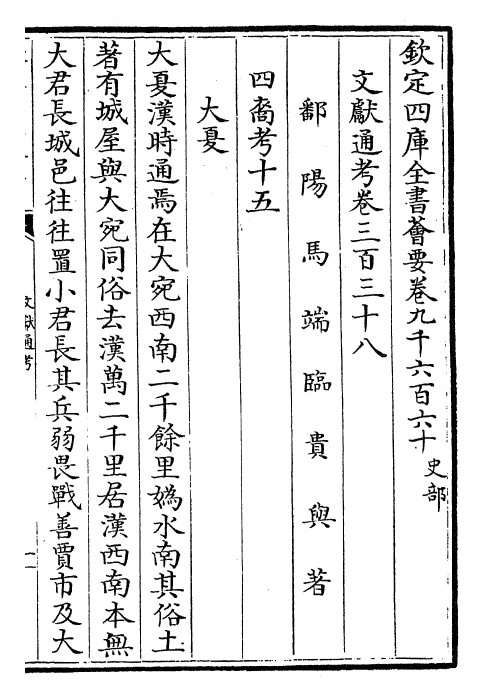 欽定四庫全書薈要卷九千六百六十 史部
文獻通考卷三百三十八
鄱陽馬端臨貴與著
四裔考十五
大夏
大夏漢時通焉在大宛西南二千餘里媯水南其俗土
著有城屋與大宛同俗去漢萬二千里居漢西南本無
大君長城邑往往置小君長其兵弱畏戰善賈市及大
文獻通考
一